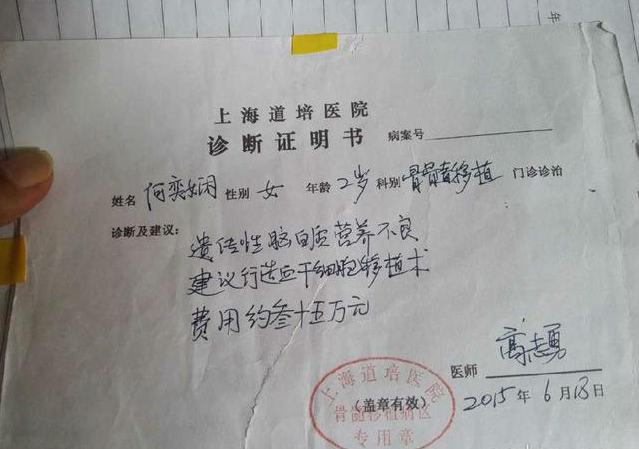 上海道培医院
诊断证明书 病案号
姓名 何奕娴 性别 女 年龄 2岁 科别 骨髓移植 门诊诊治
诊断及建议:
遗传性脑白质营养不良
建议行造血干细胞移植术
费用约叁十五万元
医师 高志勇
(盖章有效) 2015年6月18日
上海道培医院
骨髓移植病区
专用章